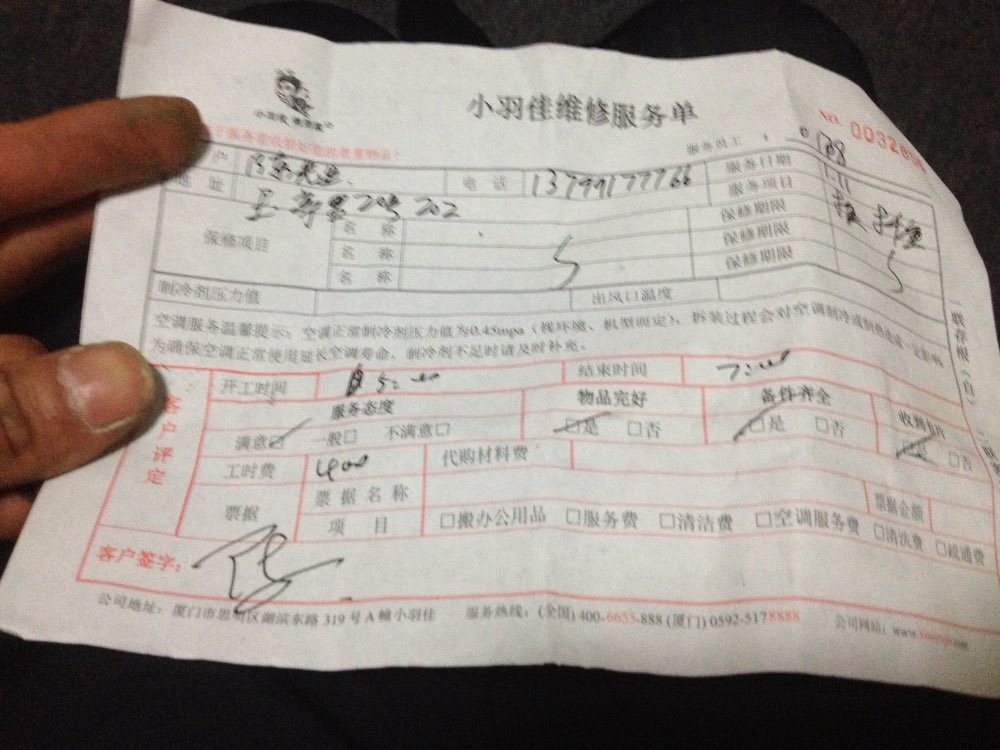 小羽佳维修服务单
服务员工：
户
电话 13799177766
服务日期 1.11
地址 20号 202
服务项目
保修项目 名称 保修期限
名称 保修期限
名称 保修期限
制冷剂压力值 出风口温度
空调服务温馨提示：空调正常制冷剂压力值为0.45mpa（视环境、机型而定），拆装过程会对空调制冷或制热造成一定影响
为确保空调正常使用延长空调寿命，制冷剂不足时请及时补充。
一联存根（白）
客户评定
开工时间 结束时间
服务态度 物品完好 备件齐全
满意☑ 一般□ 不满意□ ☑是 □否 ☑是 □否 ☑是 □否
工时费 400 代购材料费
票据 票据名称 票据金额
项目 □搬办公用品 □服务费 □清洁费 □空调服务费 □清洗费 □疏通费
客户签字：
公司地址：厦门市思明区湖滨东路 319 号 A 幢小羽佳 服务热线：(全国) 400-6655-888 (厦门) 0592-5178888 公司网站：